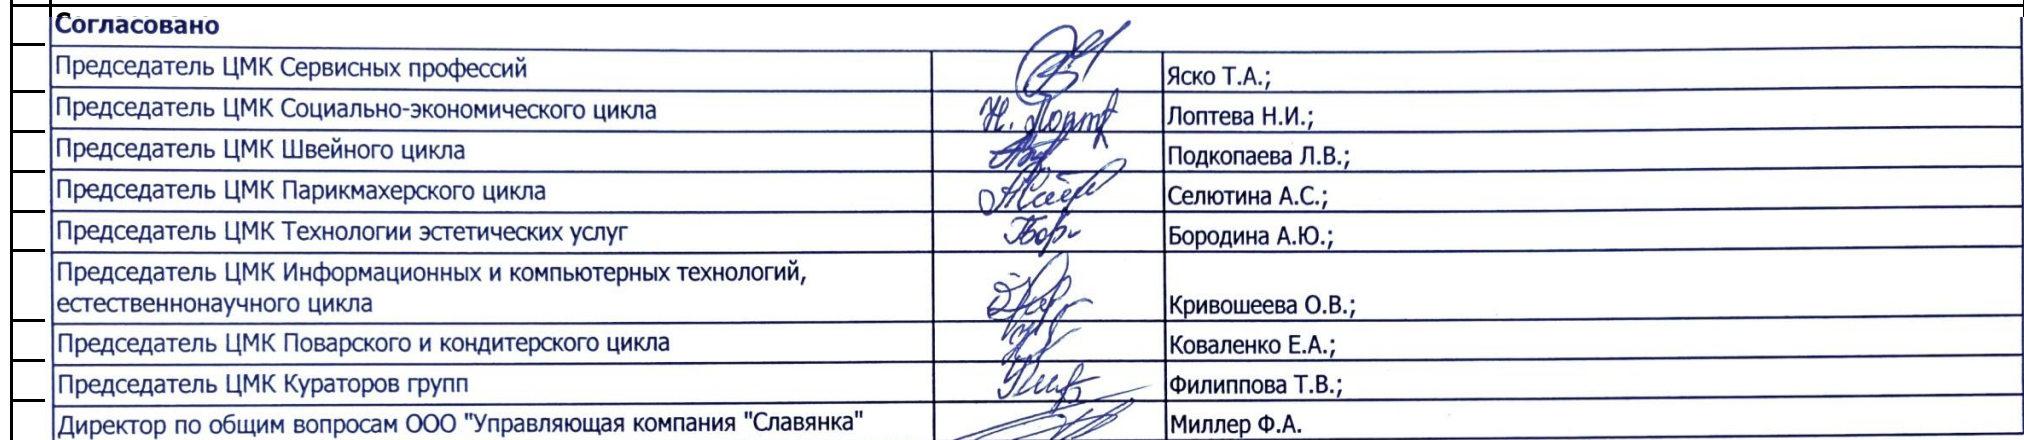 Согласовано
Председатель ЦМК Сервисных профессий Яско Т.А.;
Председатель ЦМК Социально-экономического цикла Н. Лопт Лоптева Н.И.;
Председатель ЦМК Швейного цикла Подкопаева Л.В.;
Председатель ЦМК Парикмахерского цикла Селютина А.С.;
Председатель ЦМК Технологии эстетических услуг Бородина А.Ю.;
Председатель ЦМК Информационных и компьютерных технологий,
естественнонаучного цикла Кривошеева О.В.;
Председатель ЦМК Поварского и кондитерского цикла Коваленко Е.А.;
Председатель ЦМК Кураторов групп Филиппова Т.В.;
Директор по общим вопросам ООО "Управляющая компания "Славянка" Миллер Ф.А.